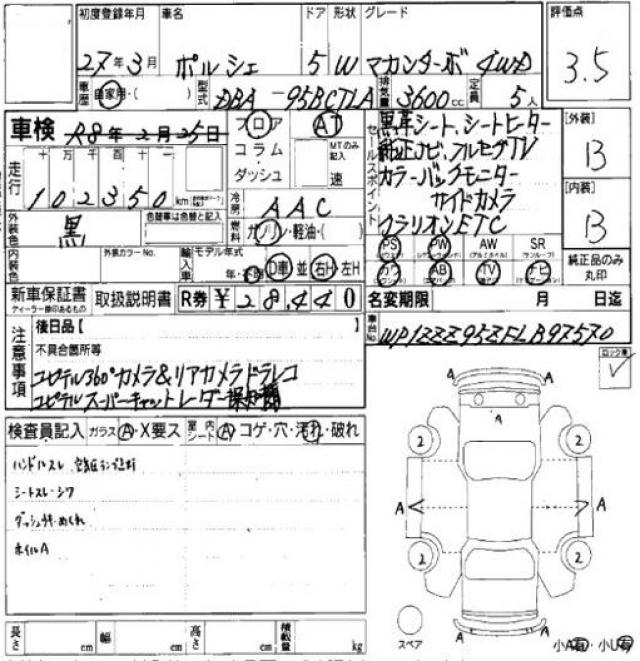 初度登録年月 車名 ドア 形状 グレード 評価点
27年3月 ポルシェ 5 W マカンターボ 4WD 3.5
車歴 自家用・( ) 型式 DBA-95BCTLA 排気量 3600cc 定員 5人
車検 R8年2月25日 フロア AT
コラム MTのみ記入
ダッシュ 速
セールスポイント
黒革シート、シートヒーター
純正ナビ、フルセグTV
カラーバックモニター
サイドカメラ
クラリオンETC
[外装] B
[内装] B
走行 十 万 千 百 十 一
102350km
冷房 AAC
外装色 黒 色替車は色替と記入
燃料 ガソリン・軽油・( )
内装色 外装カラーNo. 輸入車 モデル年式
年・不明 D車 並 右H・左H
PS PW AW SR
カワ AB TV ナビ
純正品のみ丸印
新車保証書 取扱説明書 R券 ¥28,440 名変期限 月 日迄
ディーラー捺印あるもの
車台No. WP1ZZZ95ZFLB97570
注意事項
後日品【 】
不具合箇所等
ユピテル360°カメラ&リアカメラドラレコ
ユピテルスーパーキャットレーダー探知機
ロック車 ✓
検査員記入 ガラス A・X要ス 室内シート A コゲ・穴・汚れ・破れ
ハンドルスレ
シートスレ・シワ
ダッシュキズ・めくれ
ホイルA
A A
A
2 2
A A
2 2
A A
スペア
小A有・小U有
長さ cm 幅 cm 高さ cm 積載量 kg